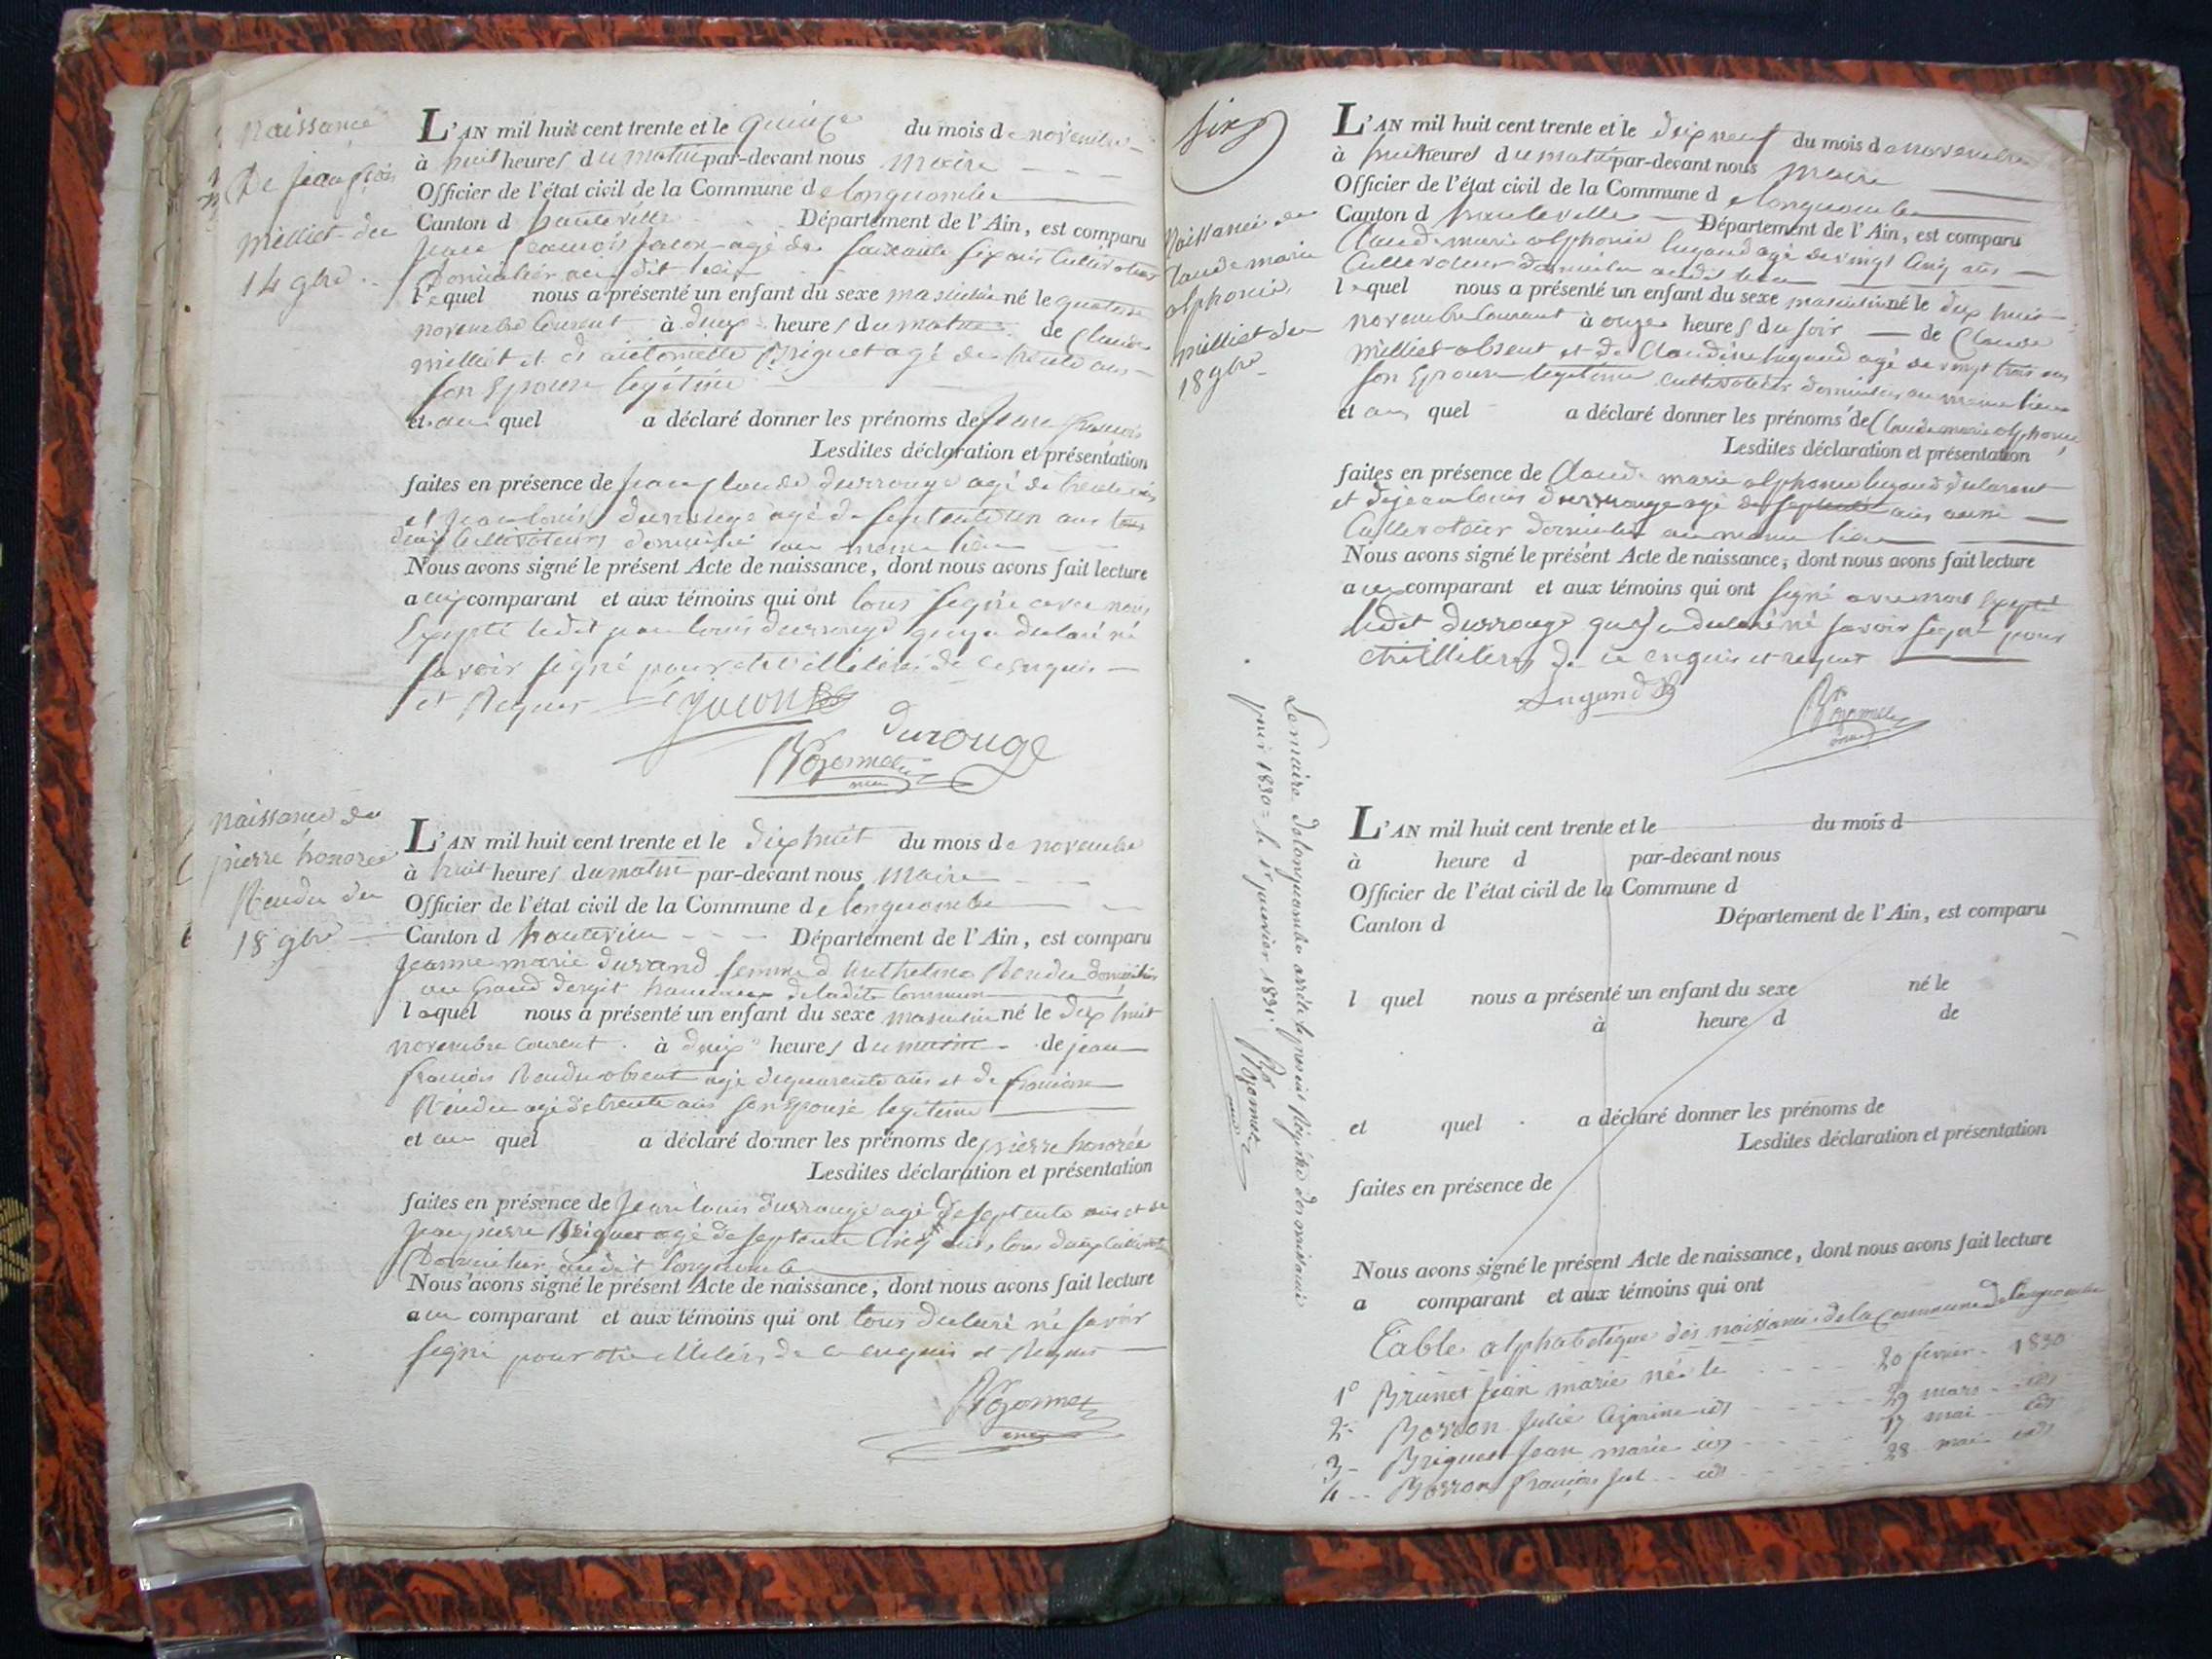 Naissance
De jean fçois
milliet du
14 9bre
L'AN mil huit cent trente et le quinze du mois de novembre
à huit heures du matin par-devant nous maire
Officier de l'état civil de la Commune de longecombe
Canton d hauteville Département de l'Ain, est comparu
jean françois jacon agé de soixante six ans cultivateur
Domicilié au dit lieu
lequel nous a présenté un enfant du sexe masculin né le quatorze
novembre courant à deux heures du matin de Claude
milliet et d'antoinette Briguet agé de trente ans
son Epouse legitime
et au quel a déclaré donner les prénoms de jean françois
Lesdites déclaration et présentation
faites en présence de jean Claude durrouge agé de trente ans
et jean louis durrouge agé de septente un ans tous
deux Cultivateurs domicilié au meme lieu
Nous avons signé le présent Acte de naissance, dont nous avons fait lecture
aux comparant et aux témoins qui ont tous signé avec nous
Excepté ledit jean louis durrouge qui a declaré ne
savoir signé pour de ce enquis
et Requis jacon
durouge
Bozonnet
naissance de
pierre honorée
Rendu du
18 9bre
L'AN mil huit cent trente et le dix huit du mois de novembre
à huit heures du matin par-devant nous maire
Officier de l'état civil de la Commune de longecombe
Canton d hauteville Département de l'Ain, est comparu
jeanne marie durand femme d'anthelme Rendu domicilié
au Grand dergit hammeau de ladite Commune
laquel nous a présenté un enfant du sexe masculin né le dix huit
novembre courent à deux heures du matin de jean
françois Rendu absent agé de quarente ans et de françoise
Rendu agé de trente ans son Epouse legitime
et au quel a déclaré donner les prénoms de pierre honorée
Lesdites déclaration et présentation
faites en présence de jean louis durrouge agé de septente ans et de
jean pierre Briguet agé de septente cinq ans tous deux cultivateurs
Domicilier audit longecombe
Nous avons signé le présent Acte de naissance, dont nous avons fait lecture
au comparant et aux témoins qui ont tous declaré ne savoir
signé pour de ce enquis et Requis
Bozonnet
six
Naissance de
Claude marie
alphonce
milliet du
18 9bre
L'AN mil huit cent trente et le dix neuf du mois de novembre
à huit heures du matin par-devant nous maire
Officier de l'état civil de la Commune d longecombe
Canton d hauteville Département de l'Ain, est comparu
Claude marie alphonce lugand agé de vingt cinq ans
Cultivateur domicilié audit lieu
lequel nous a présenté un enfant du sexe masculin né le dix huit
novembre courant à onze heures du soir de Claude
milliet absent et de Claudine lugand agé de vingt trois ans
son Epouse legitime cultivateurs domiciliés au meme lieu
et au quel a déclaré donner les prénoms de Claude marie alphonce
Lesdites déclaration et présentation
faites en présence de Claude marie alphonce lugand declarent
et de jean louis durrouge agé de septente ans aussi
Cultivateur domicilié au meme lieu
Nous avons signé le présent Acte de naissance, dont nous avons fait lecture
aux comparant et aux témoins qui ont signé avec nous Excepté
ledit durrouge qui a declaré ne savoir signé pour
de ce enquis et requis
Lugand
Bozonnet
Le maire de longecombe arrête le present Régistre des naissances
pour 1830 le 1er janvier 1831. Bozonnet
L'AN mil huit cent trente et le du mois d
à heure d par-devant nous
Officier de l'état civil de la Commune d
Canton d Département de l'Ain, est comparu
l quel nous a présenté un enfant du sexe né le
à heure d de
et quel a déclaré donner les prénoms de
Lesdites déclaration et présentation
faites en présence de
Nous avons signé le présent Acte de naissance, dont nous avons fait lecture
a comparant et aux témoins qui ont
Table alphabetique des naissances de la Commune de longecombe
1° Brunet jean marie né le 20 fevrier 1830
2 Borron julie 29 mars ids
3 Briguet jean marie ids 17 mai ids
4 Borron françois ids 28 mai ids